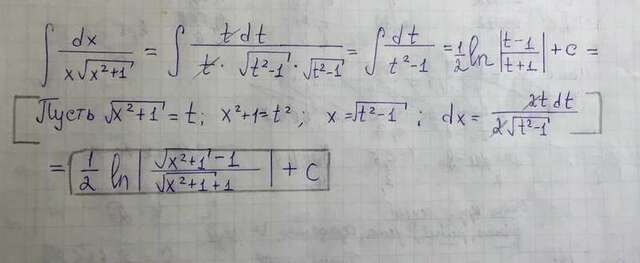 ∫ dx / (x√(x²+1)) = ∫ t dt / (t · √(t²-1) · √(t²-1)) = ∫ dt / (t²-1) = 1/2 ln |(t-1)/(t+1)| + c =
[Пусть √(x²+1) = t; x²+1=t²; x=√(t²-1); dx = 2t dt / (2√(t²-1))]
= 1/2 ln | (√(x²+1) -1) / (√(x²+1) +1) | + C